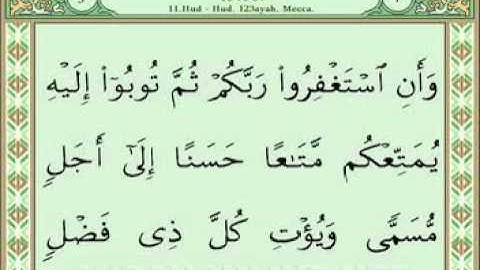 11.Hud - Hud. 123ayah. Mecca.
وَأَنِ ٱسْتَغْفِرُوا۟ رَبَّكُمْ ثُمَّ تُوبُوٓا۟ إِلَيْهِ
يُمَتِّعْكُم مَّتَـٰعًا حَسَنًا إِلَىٰٓ أَجَلٍ
مُّسَمًّى وَيُؤْتِ كُلَّ ذِى فَضْلٍ